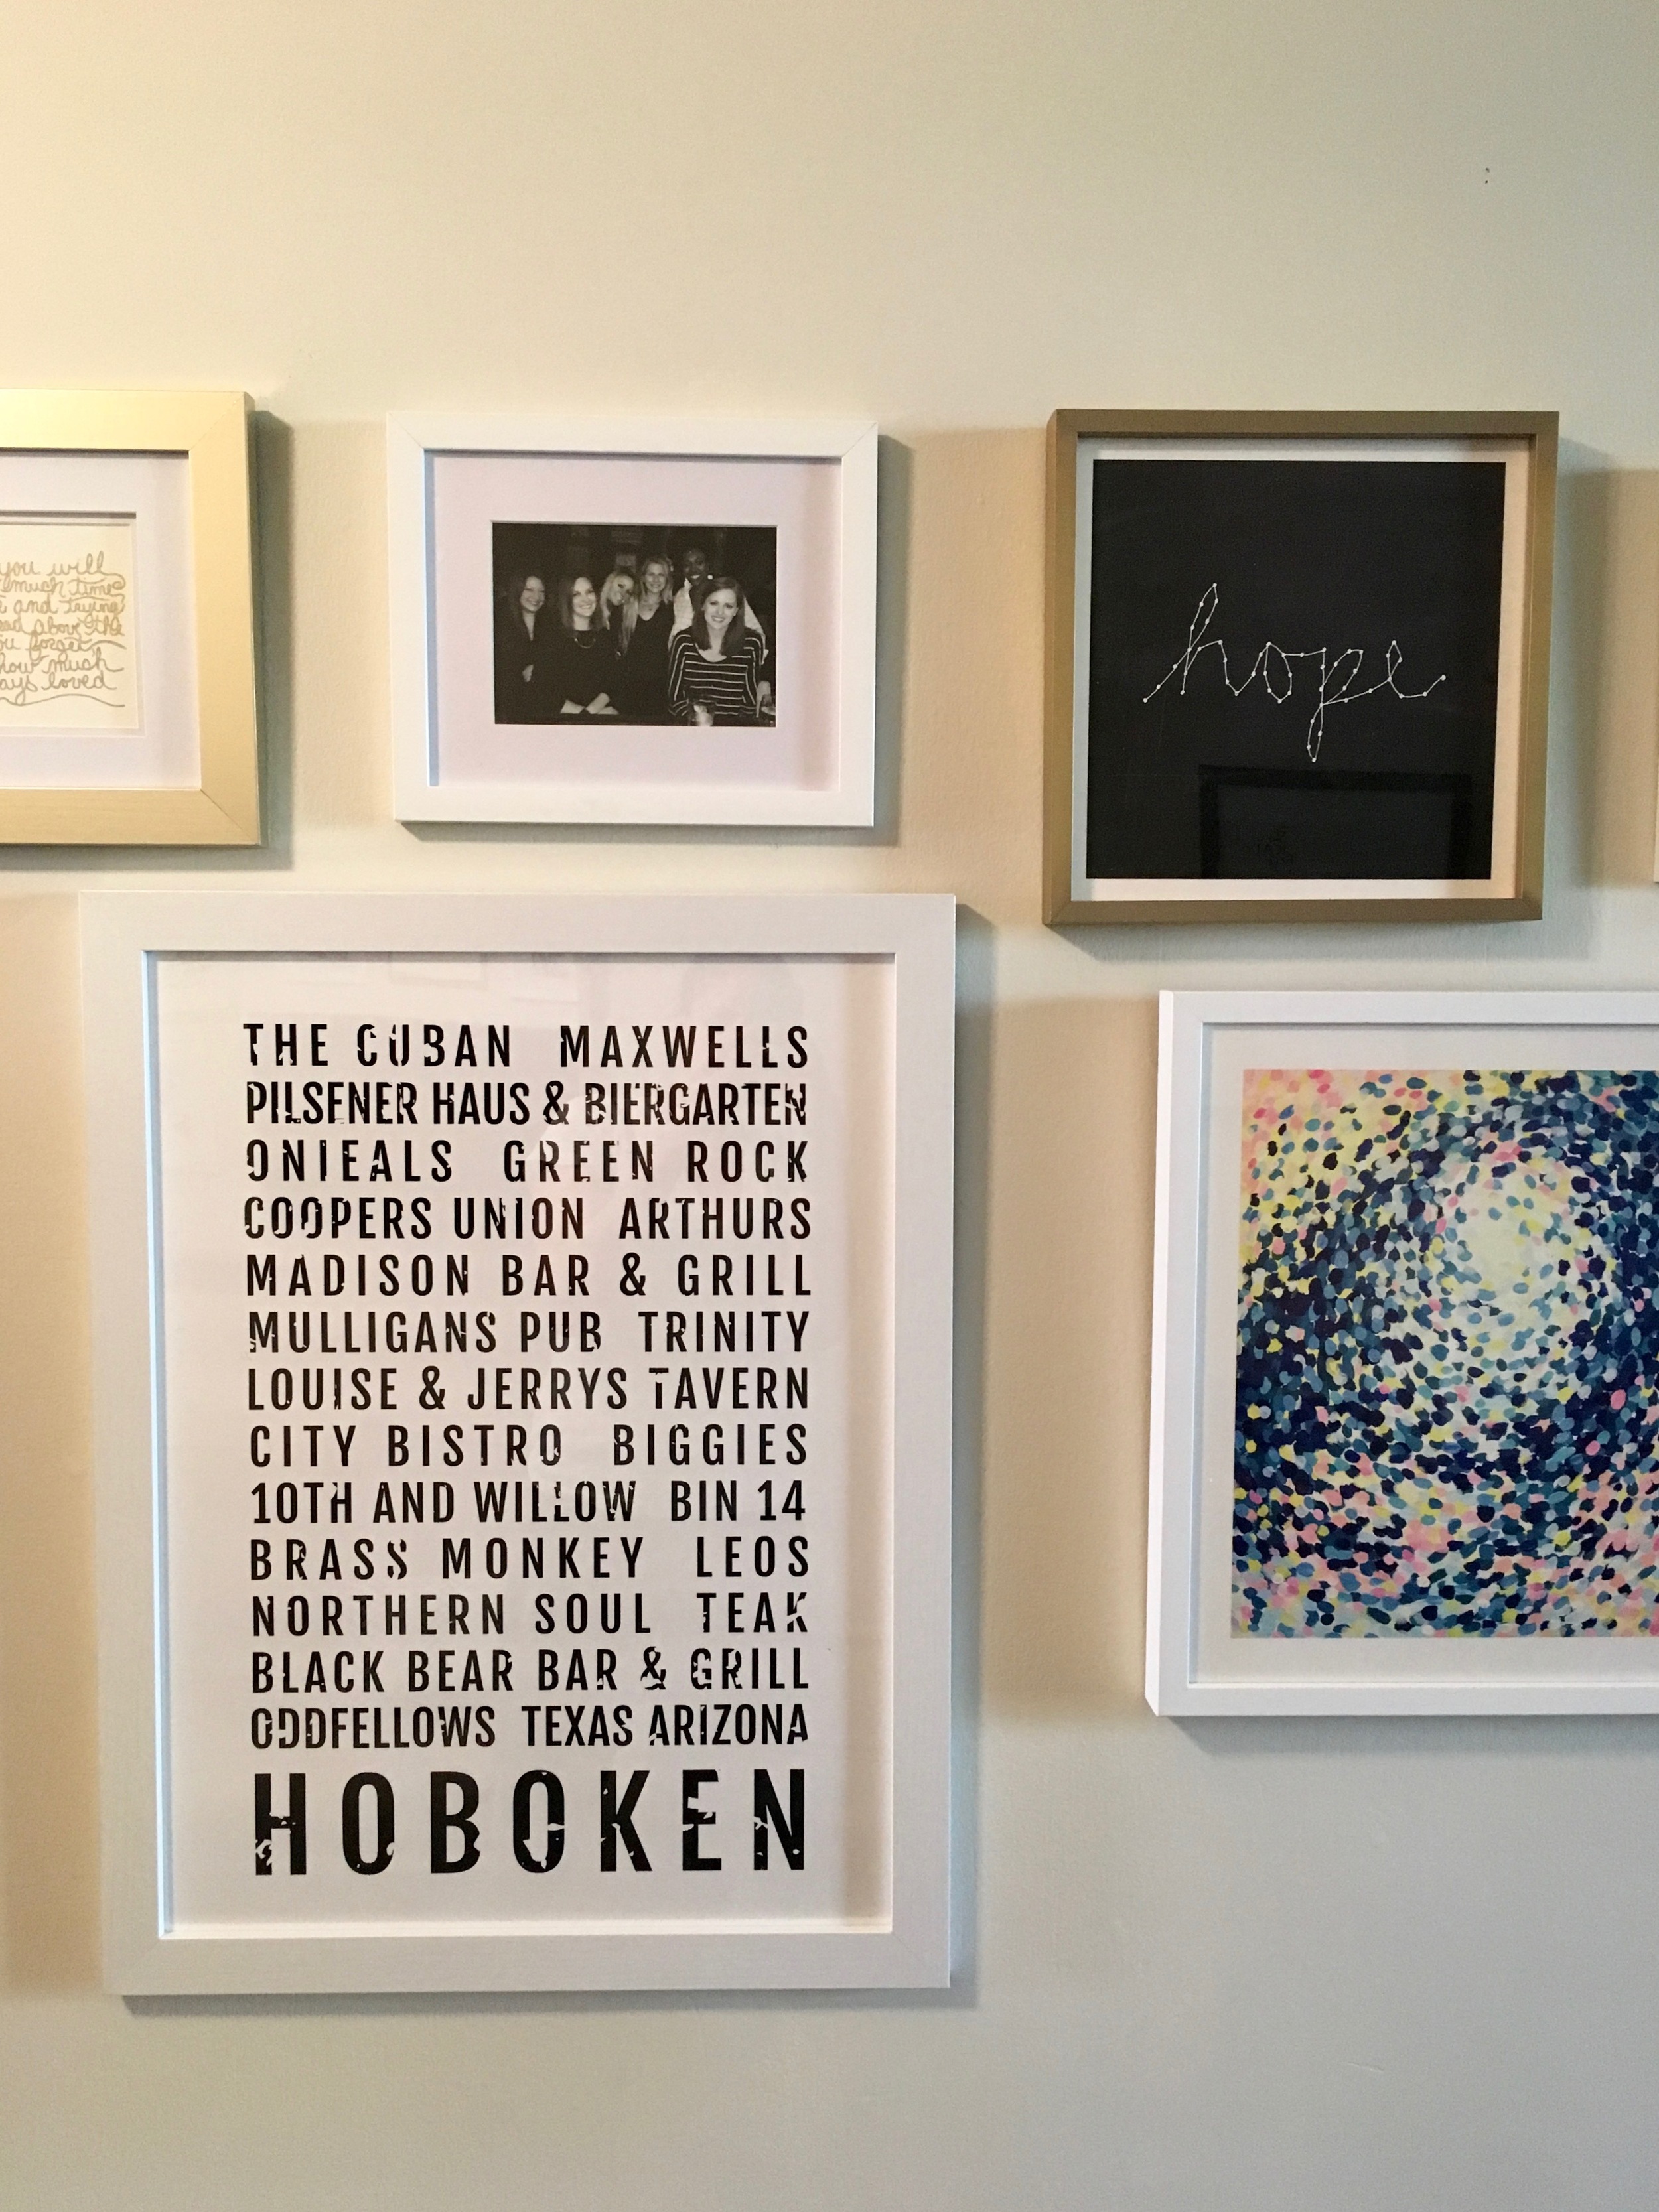 you will
much time
and trying
above the
you forget
how much
loved
hope
THE CUBAN MAXWELLS
PILSENER HAUS & BIERGARTEN
ONIEALS GREEN ROCK
COOPERS UNION ARTHURS
MADISON BAR & GRILL
MULLIGANS PUB TRINITY
LOUISE & JERRYS TAVERN
CITY BISTRO BIGGIES
10TH AND WILLOW BIN 14
BRASS MONKEY LEOS
NORTHERN SOUL TEAK
BLACK BEAR BAR & GRILL
ODDFELLOWS TEXAS ARIZONA
HOBOKEN